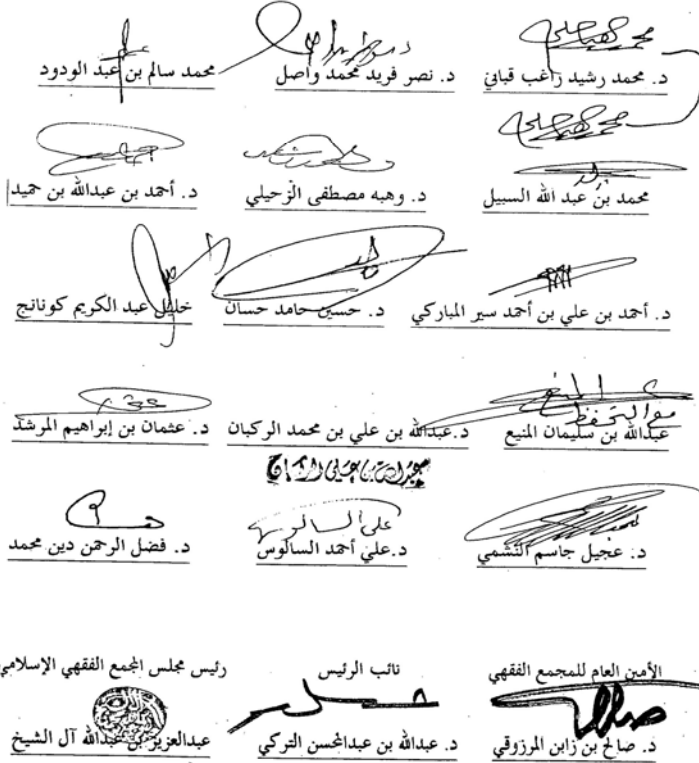 د. محمد رشيد راغب قباني
د. نصر فريد محمد واصل
محمد سالم بن عبد الودود
محمد بن عبد الله السبيل
د. وهبه مصطفى الزحيلي
د. أحمد بن عبدالله بن حميد
د. أحمد بن علي بن أحمد سير المباركي
د. حسين حامد حسان
خليل عبد الكريم كونانج
مع التحفظ
عبدالله بن سليمان المنيع
د.عبدالله بن علي بن محمد الركبان
د. عثمان بن إبراهيم المرشد
د. عجيل جاسم النشمي
د.علي أحمد السالوس
د. فضل الرحمن دين محمد
الأمين العام للمجمع الفقهي
نائب الرئيس
رئيس مجلس المجمع الفقهي الإسلامي
د. صالح بن زابن المرزوقي
د. عبدالله بن عبدالمحسن التركي
عبدالعزيز بن عبدالله آل الشيخ